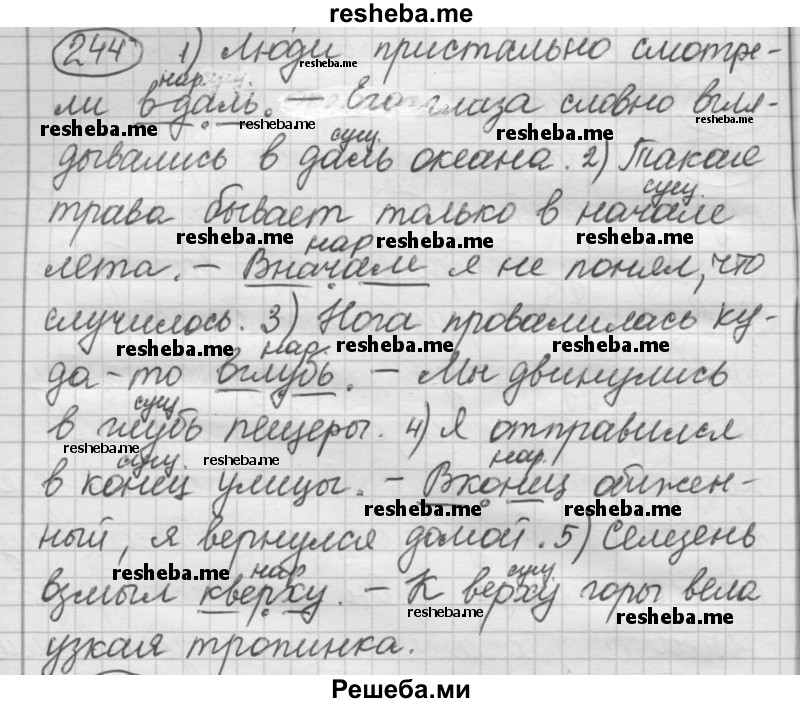 resheba.me
244 1) Люди пристально смотре-
resheba.me
нар.
ли вдаль. — Его глаза словно вгля-
resheba.me resheba.me resheba.me resheba.me
сущ.
дывались в даль океана. 2) Такая
сущ.
трава бывает только в начале
resheba.me resheba.me resheba.me
нар.
лета. – Вначале я не понял, что
случилось. 3) Нога провалилась ку-
resheba.me resheba.me resheba.me
нар.
да-то вглубь. – Мы двинулись
сущ.
в глубь пещеры. 4) Я отправился
resheba.me resheba.me
сущ. нар.
в конец улицы. – Вконец обижен-
resheba.me resheba.me
ный, я вернулся домой. 5) Селезень
resheba.me
нар. сущ.
взмыл кверху. – К верху горы вела
resheba.me resheba.me
узкая тропинка.
Решеба.ми